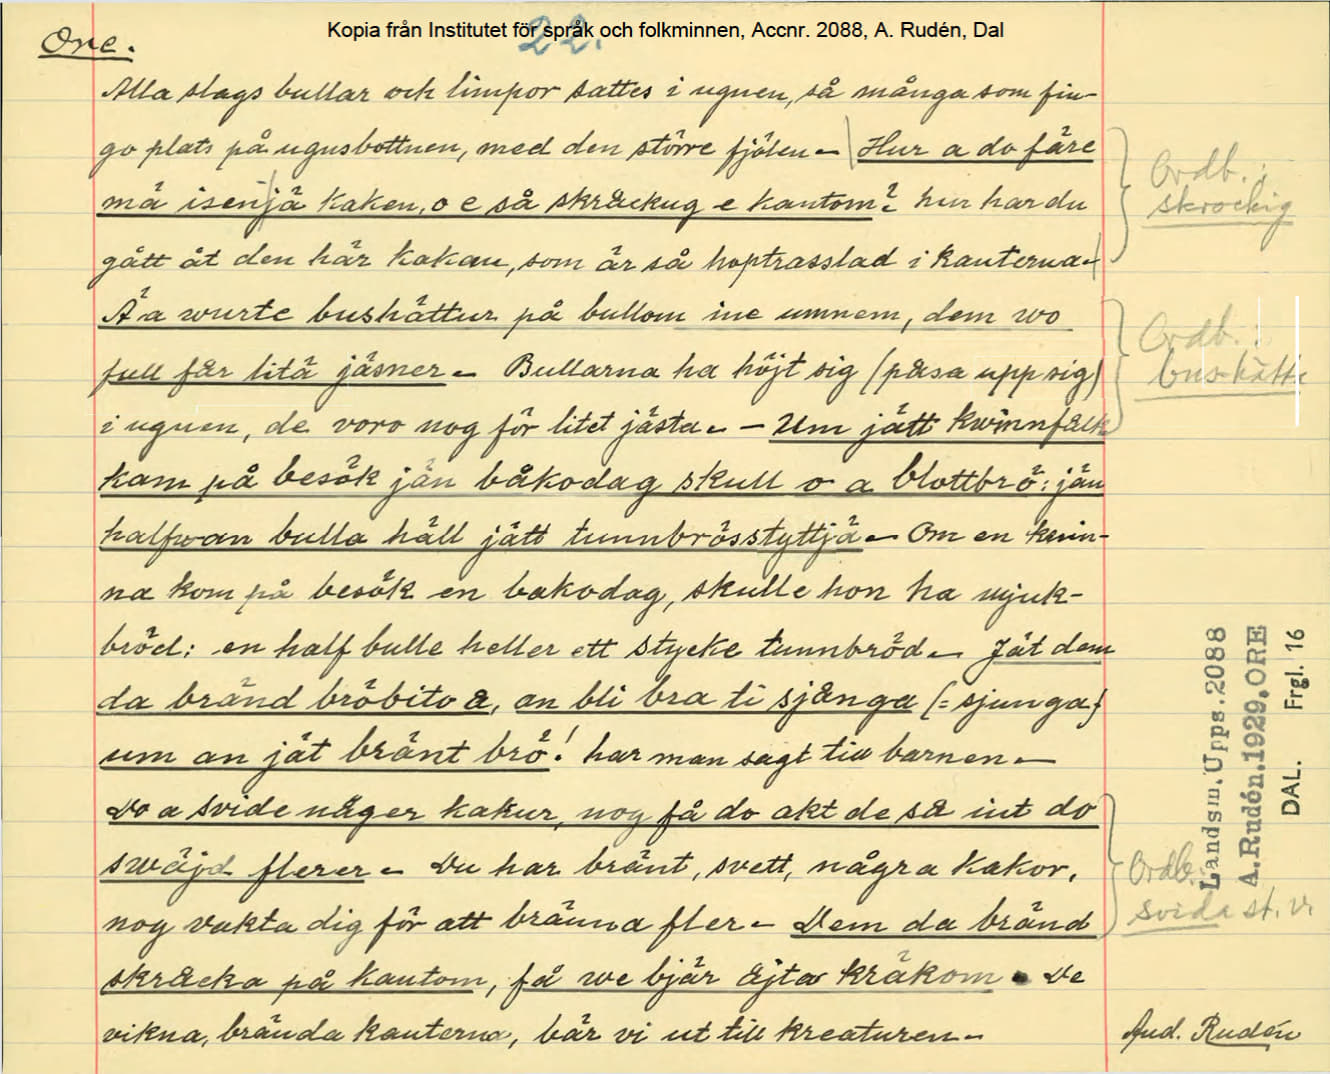 Kopia från Institutet för språk och folkminnen, Accnr. 2088, A. Rudén, Dal
22.
Ore.
Alla slags bullar och limpor sattes i ugnen, så många som fin-
go plats på ugnsbottnen, med den större fjölen - Hur a do färe
må isenjä kaken, o e så skräckug e kantom? hur har du
gått åt den här kakan, som är så hoptrasslad i kanterna -
Ä a wurte bushättur på bullom ine umnem, dem wo
full får litä jäsner - Bullarna ha höjt sig (påsa upp sig)
i ugnen, de voro nog för litet jästa. - Um jätt kwinnfålk
kam på besök jän båkodag skull o a blottbrö: jän
halfwan bulla häll jätt tunnbrösstyttjä - Om en kvin-
na kom på besök en bakodag, skulle hon ha mjuk-
bröd: en half bulle heller ett stycke tunnbröd - Jät dem
da bränd bröbito å, an bli bra ti sjånga (= sjunga)
um an jät bränt brö! har man sagt till barnen -
Do a svide någer kakur, nog få do akt de så int do
swäjd flerer - Du har bränt, svett, några kakor,
nog vakta dig för att bränna fler - Dem da bränd
skråcka på kantom, få we bjär äjtav kräkom - De
vikna, brända kanterna, bär vi ut till kreaturen -
Ordb. :
skrockig
Ordb. :
bushätta
Landsm. Upps. 2088
A. Rudén. 1929. ORE
DAL. Frgl. 16
Ordb. :
svida st. v.
And. Rudén